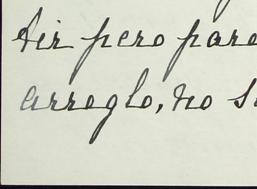 tir pero para
arreglo, no s